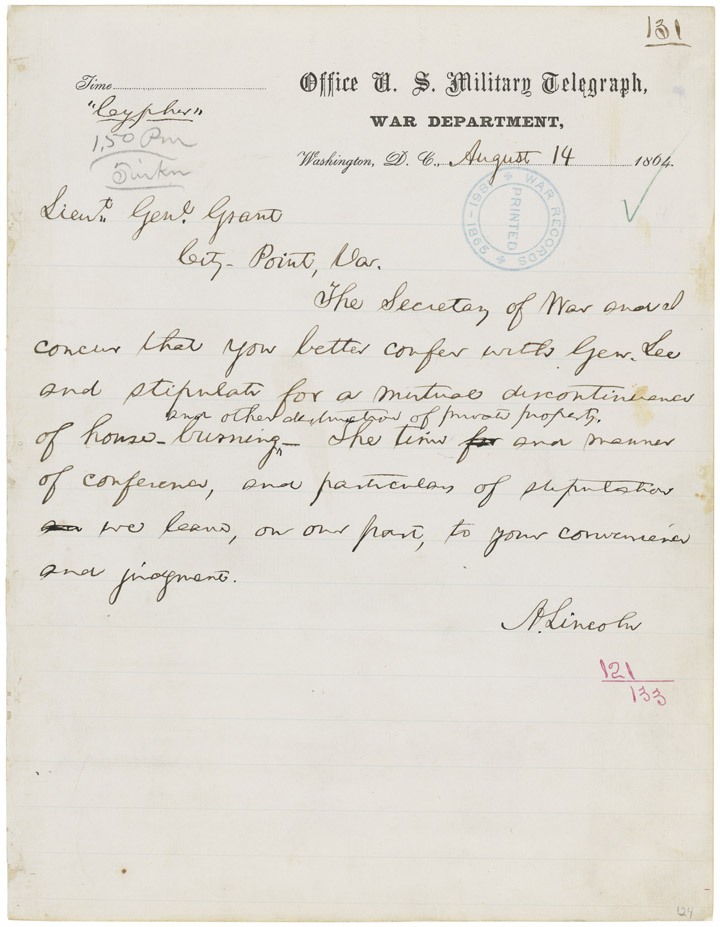 131
Office U. S. Military Telegraph,
Time
"Cypher"
WAR DEPARTMENT,
1,50 Pm
Washington, D. C., August 14 1864.
WAR RECORDS 1861-1865 PRINTED
Lieut. Genl. Grant
City-Point, Va.
The Secretary of War and I
concur that you better confer with Gen. Lee
and stipulate for a mutual discontinuance
and other destruction of private property.
of house-burning- The time for and manner
of conference, and particulars of stipulation
we leave, on our part, to your convenience
and judgment.
A. Lincoln
121
133
124